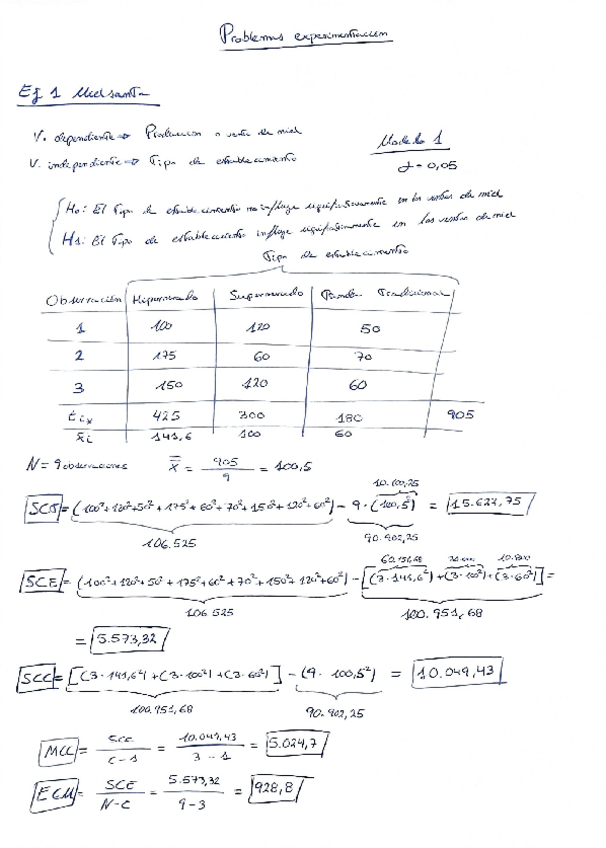 Problemas experimentación
Ej 1 Mielsanta
V. dependiente => Produccion o venta de miel
V. independiente => Tipo de establecimiento
Modelo 1
α = 0,05
H0: El Tipo de establecimiento no influye significativamente en las ventas de miel
H1: El Tipo de establecimiento influye significativamente en las ventas de miel
Tipo de establecimiento
Observación Hipermercado Supermercado Tienda Tradicional
1 100 120 50
2 175 60 70
3 150 120 60
Σix 425 300 180 905
x̄i 141,6 100 60
N = 9 observaciones x̿ = 905/9 = 100,5
10.100,25
SCT = (100²+120²+50²+175²+60²+70²+150²+120²+60²) - 9·(100,5²) = 15.622,75
106.525 90.902,25
60.151,68 10.800
SCE = (100²+120²+50²+175²+60²+70²+150²+120²+60²) - [(3·141,6²)+(3·100²)+(3·60²)] =
106.525 100.951,68
= 5.573,32
SCC = [(3·141,6²)+(3·100²)+(3·60²)] - (9·100,5²) = 10.049,43
100.951,68 90.902,25
MCC = SCC/C-1 = 10.049,43/3-1 = 5.024,7
ECM = SCE/N-C = 5.573,32/9-3 = 928,8